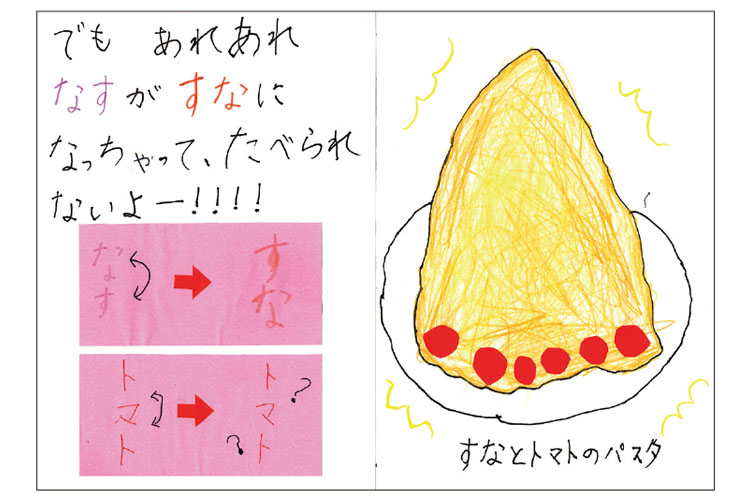 でも あれあれ
なすがすなに
なっちゃって、たべられ
ないよー!!!!
なす
すな
トマト
トマト??
すなとトマトのパスタ